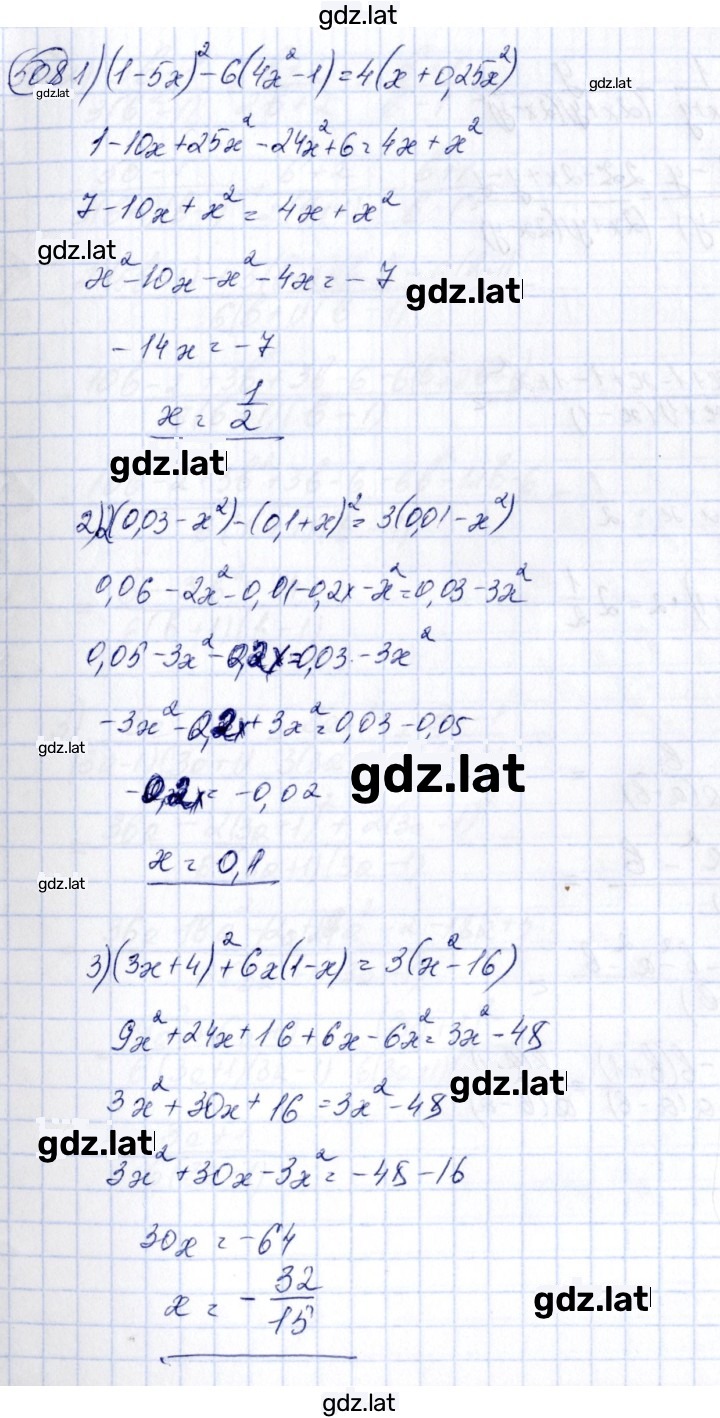 gdz.lat
508 1) (1-5x)² - 6(4x²-1) = 4(x+0,25x²)
gdz.lat
gdz.lat
1-10x+25x²-24x²+6=4x+x²
7-10x+x²=4x+x²
gdz.lat
x²-10x-x²-4x=-7
gdz.lat
-14x=-7
x=1/2
gdz.lat
2) 2(0,03-x²)-(0,1+x)²=3(0,01-x²)
0,06-2x²-0,01-0,2x-x²=0,03-3x²
0,05-3x²-0,2x=0,03-3x²
-3x²-0,2x+3x²=0,03-0,05
gdz.lat
gdz.lat
-0,2x=-0,02
x=0,1
gdz.lat
3) (3x+4)²+6x(1-x)=3(x²-16)
9x²+24x+16+6x-6x²=3x²-48
gdz.lat
3x²+30x+16=3x²-48
gdz.lat
3x²+30x-3x²=-48-16
30x=-64
x=-32/15
gdz.lat
gdz.lat